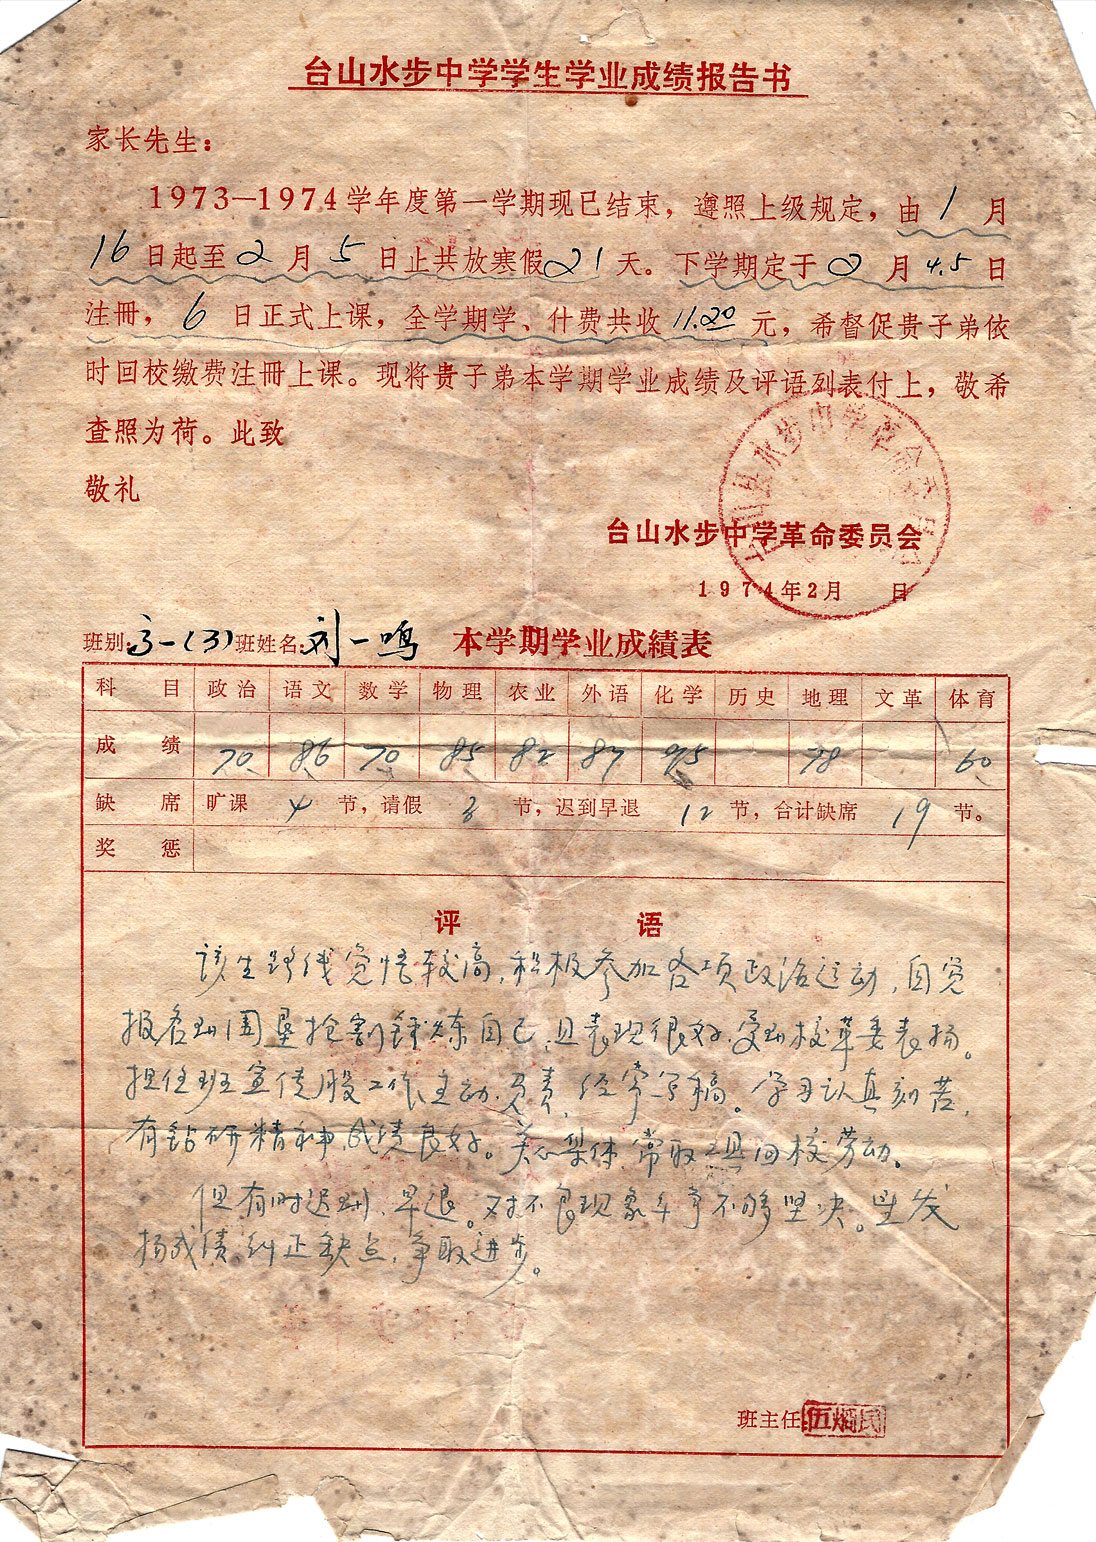 台山水步中学学生学业成绩报告书
家长先生：
1973—1974学年度第一学期现已结束，遵照上级规定，由1月
16日起至2月5日止共放寒假21天。下学期定于2月4.5日
注册，6日正式上课，全学期学、什费共收11.20元，希督促贵子弟依
时回校缴费注册上课。现将贵子弟本学期学业成绩及评语列表付上，敬希
查照为荷。此致
敬礼
台山县水步中学革命委员会
台山水步中学革命委员会
1974年2月 日
班别：高一(3)班姓名：刘一鸣 本学期学业成績表
科目 政治 语文 数学 物理 农业 外语 化学 历史 地理 文革 体育
成绩 70 86 70 85 82 87 95 78 60
缺席 旷课4节，请假3节，迟到早退12节，合计缺席19节。
奖惩
评语
该生路线觉悟较高，积极参加各项政治运动，自觉
报名到围垦抢割锻炼自己，且表现很好，受到校革委表扬。
担任班宣传股工作主动、负责，经常写稿。学习认真刻苦，
有钻研精神，成绩良好。关心集体，常取工具回校劳动。
但有时迟到、早退。对不良现象斗争不够坚决。望发
扬成绩，纠正缺点，争取进步。
班主任 伍炳民